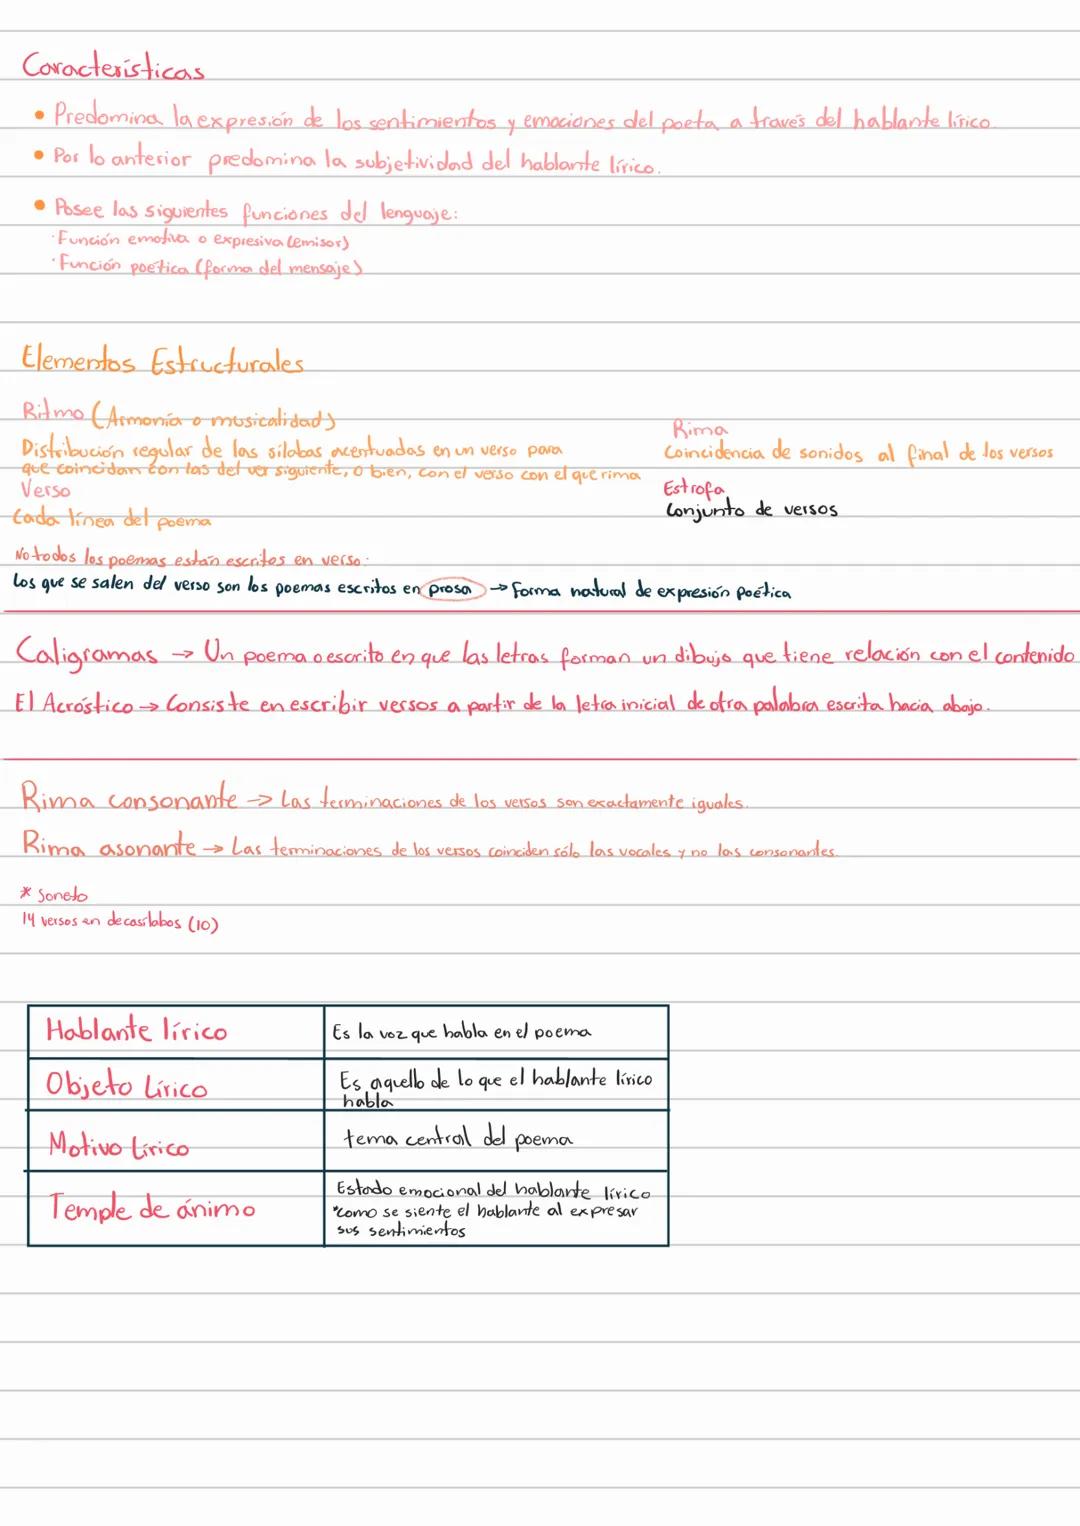 Características
• Predomina la expresión de los sentimientos y emociones del poeta a través del hablante lírico.
• Por lo anterior predomina la subjetividad del hablante lírico.
• Posee las siguientes funciones del lenguaje:
· Función emotiva o expresiva (emisor)
· Función poética (forma del mensaje)
Elementos Estructurales
Ritmo (Armonía o musicalidad)
Distribución regular de las sílabas acentuadas en un verso para
que coincidan con las del ver siguiente, o bien, con el verso con el que rima
Verso
Cada línea del poema
Rima
Coincidencia de sonidos al final de los versos
Estrofa
Conjunto de versos
No todos los poemas están escritos en verso:
Los que se salen del verso son los poemas escritos en prosa → Forma natural de expresión poética
Caligramas → Un poema o escrito en que las letras forman un dibujo que tiene relación con el contenido
El Acróstico → Consiste en escribir versos a partir de la letra inicial de otra palabra escrita hacia abajo.
Rima consonante → Las terminaciones de los versos son exactamente iguales.
Rima asonante → Las terminaciones de los versos coinciden sólo las vocales y no las consonantes.
* Soneto
14 versos en decasílabos (10)
Hablante lírico
Es la voz que habla en el poema
Objeto Lírico
Es aquello de lo que el hablante lírico
habla
Motivo Lírico
tema central del poema
Temple de ánimo
Estado emocional del hablante lírico
*como se siente el hablante al expresar
sus sentimientos